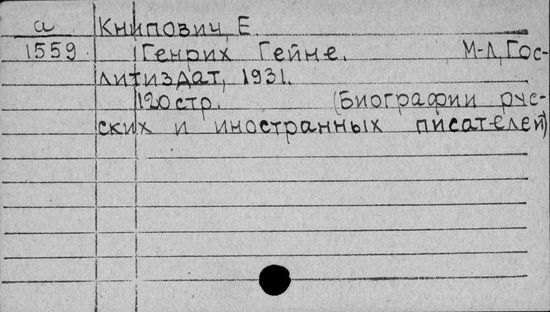 а Книпович, Е.
1559 Генрих Гейне. М-Л, Гос-
литиздат, 1931.
120 стр. (Биографии рус-
ских и иностранных писателей)